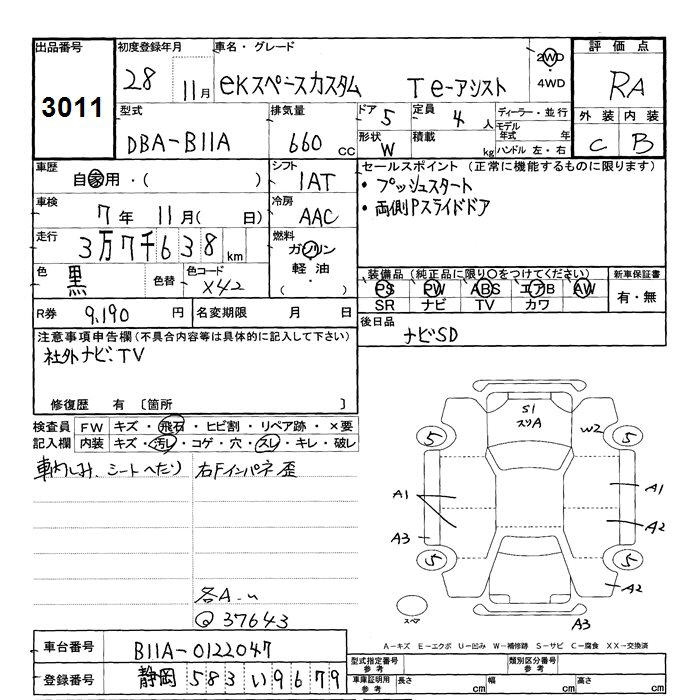 出品番号
3011
初度登録年月
28 11月
車名・グレード
eKスペースカスタム T e-アシスト
2WD
・
4WD
評価点
RA
外装 内装
C B
型式
DBA-B11A
排気量
660 cc
ドア 5
定員 4 人
形状 W
積載 kg
ディーラー・並行
モデル年式 年
ハンドル 左・右
車歴
自家用・( )
シフト
1AT
車検
7年 11月( 日)
冷房
AAC
走行
3万7千638km
燃料
ガソリン
軽油
・( )
色
黒
色替
色コード
X42
R券 9,190 円
名変期限 月 日
セールスポイント (正常に機能するものに限ります)
・プッシュスタート
・両側Pスライドドア
装備品 (純正品に限り○をつけてください)
PS PW ABS エアB AW
SR ナビ TV カワ
新車保証書
有・無
後日品
ナビSD
注意事項申告欄(不具合内容等は具体的に記入して下さい)
社外ナビ、TV
修復歴 有 〔箇所 〕
検査員記入欄
FW キズ・飛石・ヒビ割・リペア跡・×要
内装 キズ・汚レ・コゲ・穴・スレ・キレ・破レ
車内しみ、シートへたり
右Fインパネ歪
各A
Q 37643
S1
スリA
W2
5
5
A1
A1
A2
A3
5
5
A2
A3
スペア
A-キズ E-エクボ U-凹み W-補修跡 S-サビ C-腐食 XX-交換済
車台番号 B11A-0122047
登録番号 静岡 583 い 9679
型式指定番号 参考
類別区分番号 参考
車庫証明用 参考
長さ cm
幅 cm
高さ cm